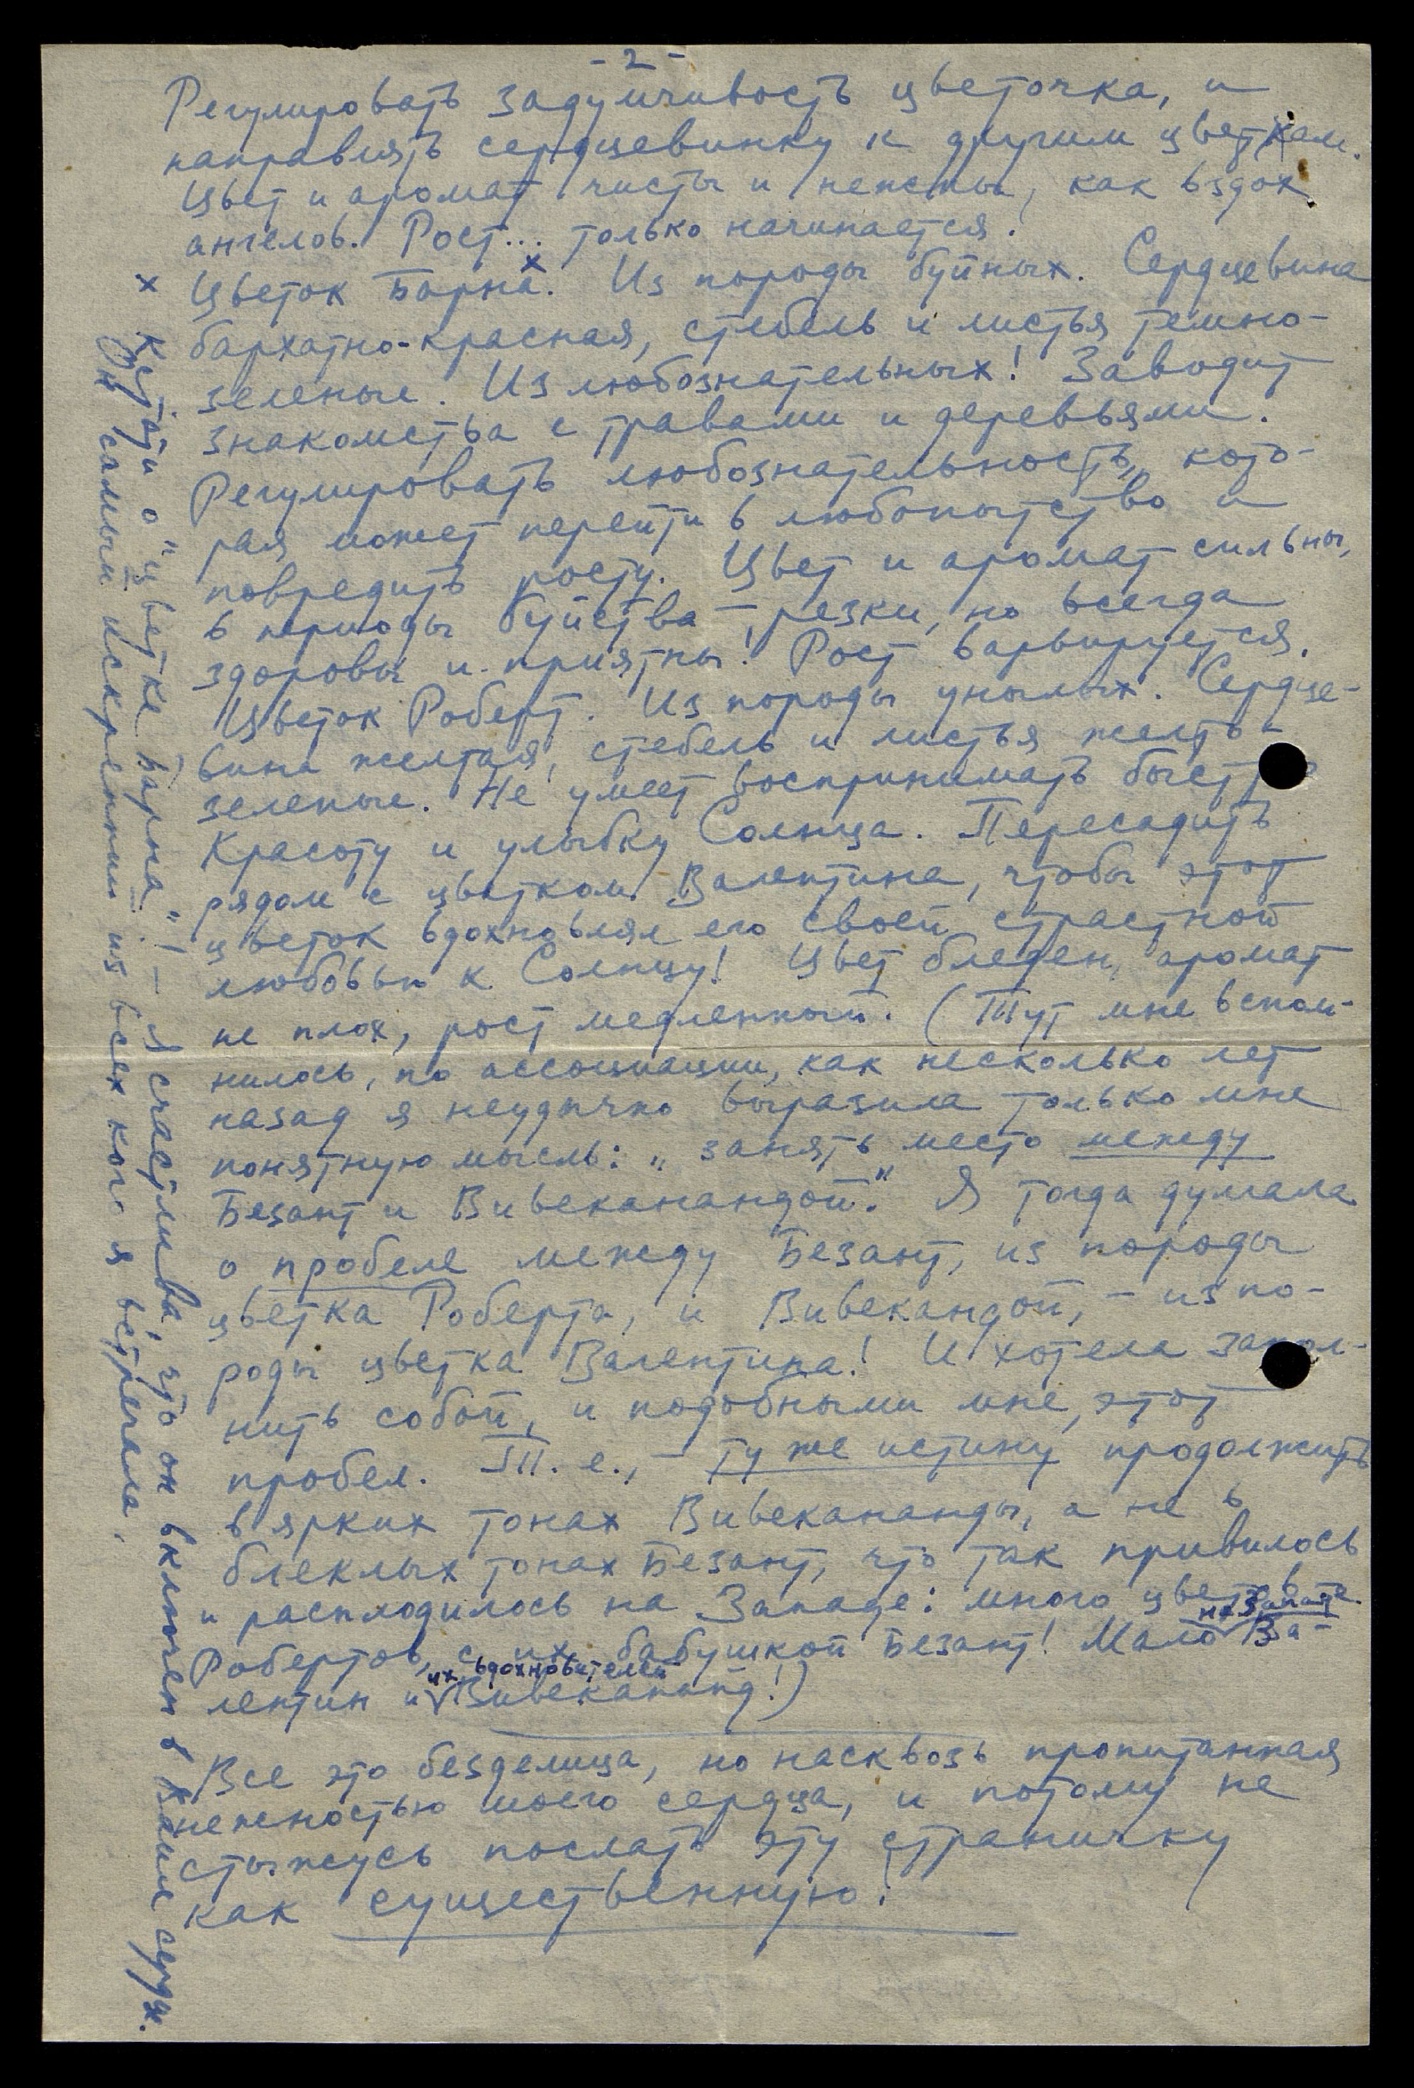 - 2 -
Регулировать задумчивость цветочка, и
направлять сердцевинку к другим цветкам.
Цвет и аромат чисты и нежны, как вздох
ангелов. Рост... только начинается!
Цветок Барна x. Из породы буйных. Сердцевина
бархатно-красная, стебель и листья темно-
зеленые. Из любознательных! Заводит
знакомства с травами и деревьями.
Регулировать любознательность, кото-
рая может перейти в любопытство и
повредить росту. Цвет и аромат сильны,
в периоды буйства – резки, но всегда
здоровы и приятны! Рост варьируется.
Цветок Роберт. Из породы унылых. Сердце-
вина желтая, стебель и листья желто-
зеленые. Не умеет воспринимать быстро
Красоту и улыбку Солнца. Пересадить
рядом с цветком Валентина, чтобы этот
цветок вдохновлял его своей страстной
любовью к Солнцу! Цвет бледен, аромат
не плох, рост медленный. (Тут мне вспом-
нилось, по ассоциации, как несколько лет
назад я неудачно выразила только мне
понятную мысль: „занять место между
Безант и Вивеканандой." Я тогда думала
о пробеле между Безант, из породы
цветка Роберта, и Вивекандой, – из по-
роды цветка Валентина! И хотела запол-
нить собой, и подобными мне, этот
пробел. Т. е., – ту же истину продолжить
в ярких тонах Вивекананды, а не в
блеклых тонах Безант, что так привилось
и расплодилось на Западе: много цветов
Робертов, с их бабушкой Безант! Мало на Западе Ва-
лентин и их вдохновителей Вивекананд!)
Все это безделица, но насквозь пропитанная
нежностью моего сердца, и потому не
стыжусь послать эту страничку
как существенную!
x Кстати о „цветке Барна"! – Я счастлива, что он включен в Ваше сердце.
Он самый искренний из всех кого я встречала.